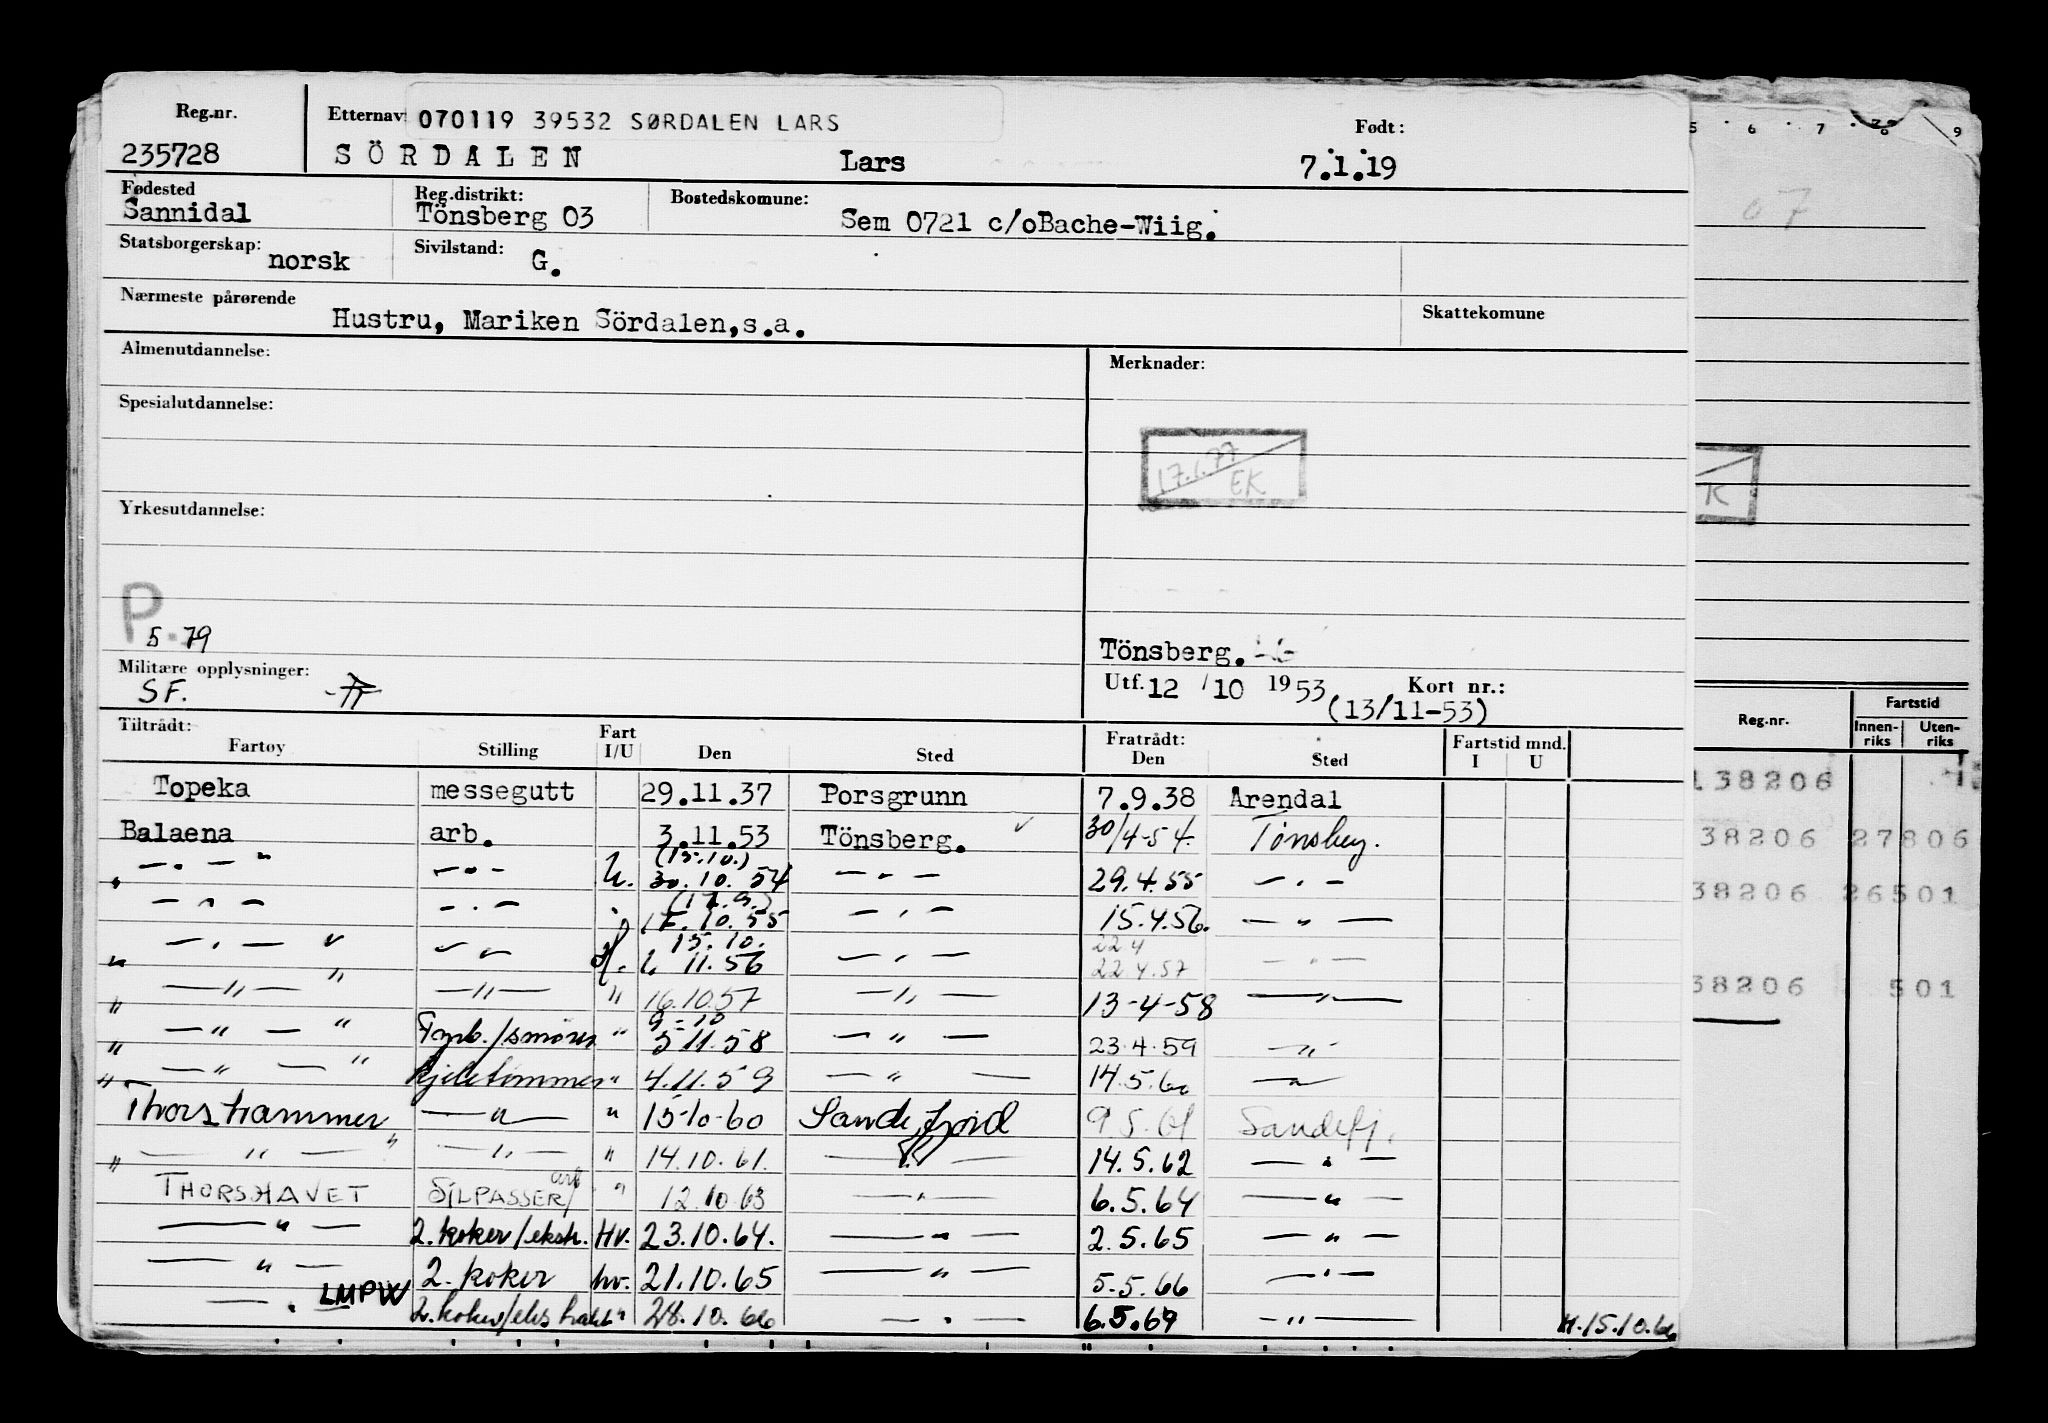 Reg.nr. Etternav: 070119 39532 SØRDALEN LARS Født:
235728 SÖRDALEN Lars 7.1.19
Fødested Reg.distrikt: Bostedskomune:
Sannidal Tönsberg 03 Sem 0721 c/oBache-Wiig.
Statsborgerskap: norsk Sivilstand: G.
Nærmeste pårørende Hustru, Mariken Sördalen,s.a. Skattekomune
Almenutdannelse: Merknader:
Spesialutdannelse:
17.1.77
EK
K
Yrkesutdannelse:
P.
5.79
Tönsberg.
Militære opplysninger: Utf. 12 / 10 1953 Kort nr.:
SF. (13/11-53)
Tiltrådt: Fart Fratrådt: Fartstid mnd.
Fartøy Stilling I/U Den Sted Den Sted I U
Topeka messegutt 29.11.37 Porsgrunn 7.9.38 Arendal
Balaena arb. 3.11.53 Tönsberg. 30/4-54. Tönsberg.
(15.10.)
— " — — " — h. 30.10.54 — " — 29.4.55 — " —
(17.9.)
— " — — " — 17.10.55 — " — 15.4.56. — " —
15.10. 22.4
" — " — " " " 11.56 — " — 22.4.57 — " —
" — " — " — " — " 16.10.57 — " — 13-4-58 — " —
9-10
" — " — " / smører " 5.11.58 — " — 23.4.59 — " —
" — " — " kjeletømmer " 4.11.59 — " — 14.5.60 — " —
Thorshammer — " — " 15-10-60 Sandefjord 9.5.61 Sandefj.
" — " — " — " — " 14.10.61. — " — 14.5.62 — " —
THORSHAVET SJLPASSER/arb " 12.10.63 — " — 6.5.64 — " —
— " — 2. koker/eksh. Hv. 23.10.64. — " — 2.5.65 — " —
— " — 2. koker hv. 21.10.65 — " — 5.5.66 — " —
— " — LMPW 2. koker/ " 28.10.66 — " — 6.5.69 — " — H.15.10.66
5 6 7 8 9
07
Reg.nr. Fartstid
Innen-riks Uten-riks
138206
38206 27806
38206 26501
38206 501